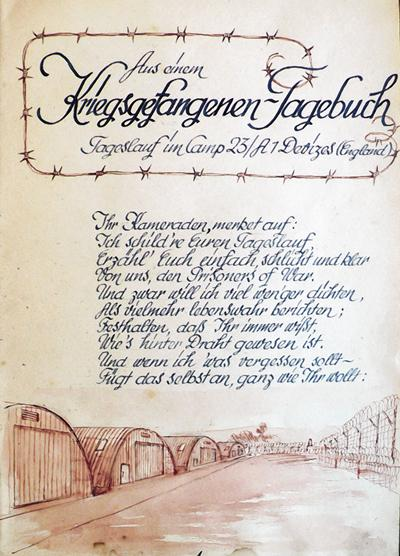 Aus einem
Kriegsgefangenen-Tagebuch
Tageslauf im Camp 23/A1 Devizes (England)
Ihr Kameraden, merket auf:
Ich schild're Euren Tageslauf,
Erzähl' Euch einfach, schlicht und klar
Von uns, den Prisoners of War.
Und zwar will ich viel wen'ger dichten,
Als vielmehr lebenswahr berichten;
Festhalten, daß Ihr immer wißt,
Wie's hinter Draht gewesen ist.
Und wenn ich 'was vergessen sollt-
Fügt das selbst an, ganz wie Ihr wollt: